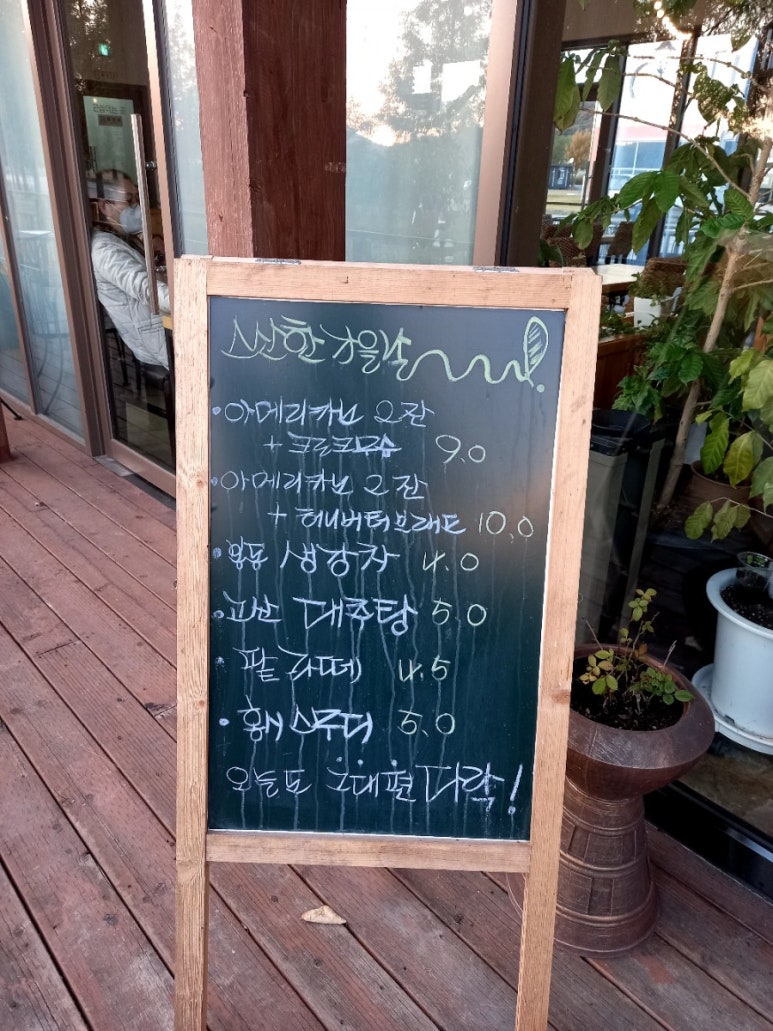 스산한 가을날
• 아메리카노 2잔
+ 크로크무슈 9.0
• 아메리카노 2잔
+ 허니버터브레드 10.0
• 생강차 4.0
• 대추탕 5.0
• 팥라떼 4.5
• 스무디 5.0
오늘도 그대편 다락!